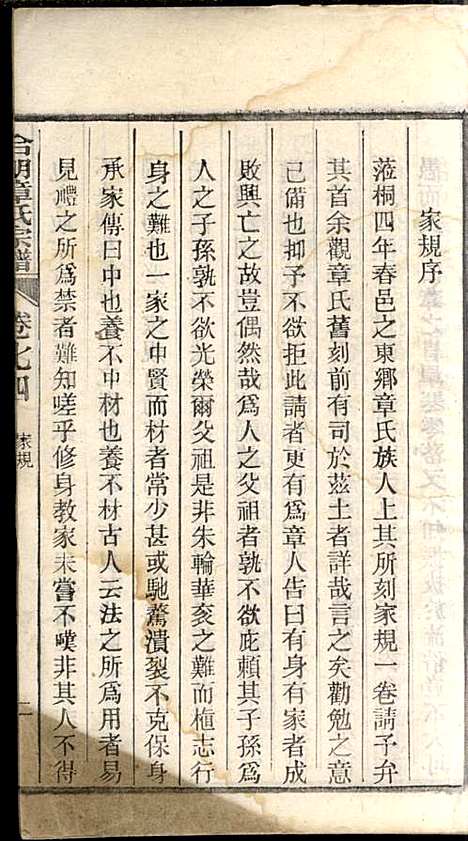 家規序
蒞桐四年春邑之東鄉章氏族人上其所刻家規一卷請予弁
其首余觀章氏舊刻前有司於茲土者詳哉言之矣勸勉之意
已備也抑予不欲拒此請者更有為章人告曰有身有家者成
敗興亡之故豈偶然哉為人之父祖者孰不欲庇賴其子孫為
人之子孫孰不欲光榮爾父祖是非朱輪華袞之難而植志行
身之難也一家之中賢而材者常少甚或馳騖潰裂不克保身
承家傳曰中也養不中材也養不材古人云法之所為用者易
見禮之所為禁者難知嗟乎修身教家未嘗不嘆非其人不得
章氏宗譜
卷之四
家規